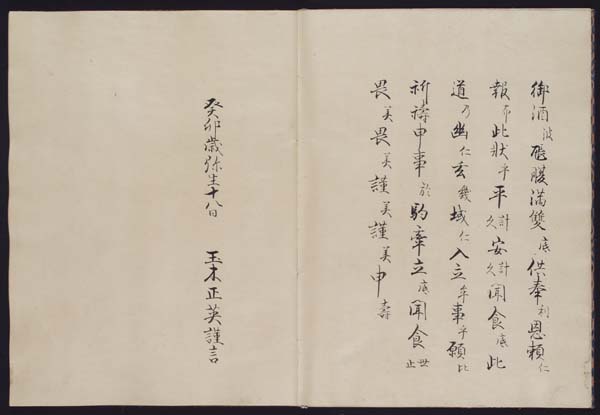 御酒波𤭖腹満雙底供奉利恩頼仁
報布此状乎平計久安計久聞食底此
道乃幽仁玄幾域仁入立牟事乎願比
祈祷申事於駒牽立底聞食世止
畏美畏美謹美謹美申寿
癸卯歳弥生十八日
玉木正英謹言